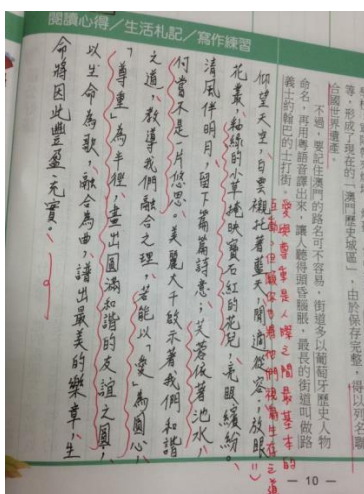 閱讀心得／生活札記／寫作練習
等，形成了現在的「澳門歷史城區」，由於保存完整，得以列名聯
合國世界遺產。
不過，要記住澳門的路名可不容易，街道多以葡萄牙歷史人物
命名，再用粵語音譯出來，讓人聽得頭昏腦脹，最長的街道叫做路
義士約翰巴的士打街。
愛與尊重是人際之間最基本的
仰望天空，白雲襯托著藍天，閒適從容；放眼
花叢，釉綠的小草掩映寶石紅的花兒，亮眼繽紛。
清風伴明月，留下篇篇詩意；芙蓉依著池水，
何嘗不是一片悠思。美麗大千啟示著我們和諧
之道，教導我們融合之理，若能以「愛」為圓心，
「尊重」為半徑，畫出圓滿和諧的友誼之圓，
以生命為歌，融合為曲，譜出最美的樂章，生
命將因此豐盈充實。
— 10 —